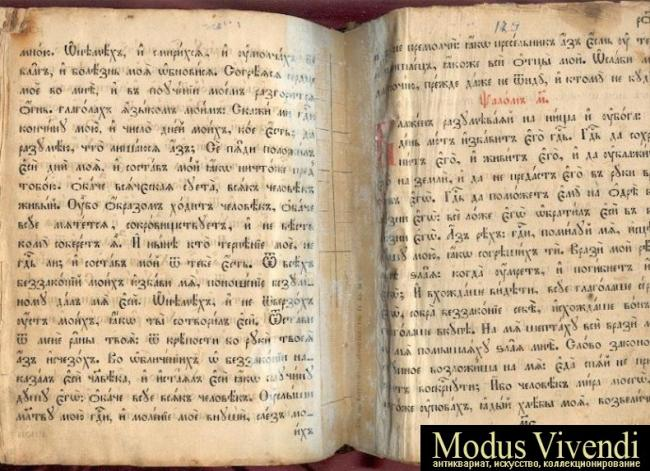 мною. Ѡ҆нѣмѣхъ, и҆ смирихсѧ, и҆ ѹ҆молчахъ ѿ
благъ, и҆ болѣзнь моѧ̀ ѡ҆бновисѧ. Согрѣѧсѧ сердце
мое во мнѣ, и҆ въ поученїи моемъ разгоритсѧ
ѻ҆гнь. глаголахъ ѧ҆зыкомъ моимъ: Скажи ми гдⷭ҇и
кончину мою, и҆ число дней моихъ, кое є҆сть; да
разумѣю, что лишаюсѧ а҆зъ; Се пѧди положилъ
є҆си дни моѧ̀, и҆ составъ мой ꙗ҆кѡ ничтоже пред
тобою. ѻ҆баче всѧческаѧ суета, всѧкъ человѣкъ
живый. Оу҆бо ѻ҆бразомъ ходитъ человѣкъ, ѻ҆баче
всуе мѧтетсѧ, сокровищствуетъ, и҆ не вѣсть
кому соберетъ ѧ҆̀. И҆ нынѣ кто терпѣнїе мое, не
гдⷭ҇ь ли; и҆ составъ мой ѿ тебе є҆сть. Ѿ всѣхъ
беззаконїй моихъ и҆збави мѧ, поношенїе безум-
ному далъ мѧ є҆си. Ѡ҆нѣмѣхъ, и҆ не ѿверзохъ
ѹ҆стъ моихъ, ꙗ҆кѡ ты сотворилъ є҆си. Ѿстави
ѿ мене раны твоѧ̀: ѿ крѣпости бо руки твоеѧ̀
а҆зъ и҆счезохъ. Во ѡ҆бличенїихъ ѡ҆ беззаконїи на-
казалъ є҆си чл҃вѣка, и҆ и҆стаѧлъ є҆си ꙗ҆кѡ паучину
душу є҆гѡ: ѻ҆баче всуе всѧкъ человѣкъ. Оу҆слыши
мл҃тву мою гдⷭ҇и, и҆ моленїе мое внуши, слезъ мо-
ихъ
129
не премолчи: ꙗ҆кѡ преселникъ а҆зъ є҆смь ѹ҆ те
пришлецъ, ꙗ҆коже вси ѻ҆тцы мои. Ѡ҆слаби м
почїю, прежде даже не ѿиду, и҆ ктому не бу
Ѱаломъ м҃.
Блаженъ разумѣваѧй на нища и҆ ѹ҆бога:
день лютъ и҆збавитъ є҆го гдⷭ҇ь. Гдⷭ҇ь да сохра
нитъ є҆го, и҆ живитъ є҆го, и҆ да ѹ҆блажит
го на земли, и҆ да не предастъ є҆го въ руки вр
є҆гѡ. Гдⷭ҇ь да поможетъ є҆му на ѻ҆дрѣ б
зни є҆гѡ: все ложе є҆гѡ ѡ҆братилъ є҆си въ б
є҆гѡ. А҆зъ рѣхъ: гдⷭ҇и, помилуй мѧ, и҆сцѣ
мою, ꙗ҆кѡ согрѣшихъ ти. Врази мои рѣ
ѣ злаѧ: когда ѹ҆мретъ, и҆ погибнетъ и
И҆ вхождаше видѣти, всуе глаголаше се
ѡ, собра беззаконїе себѣ, и҆схождаше вонъ
голаше вкупѣ. На мѧ шептаху вси врази м
мѧ помышлѧху злаѧ мнѣ. Слово законо
ное возложиша на мѧ: є҆да спѧй не пр
тъ воскрⷭ҇нути; И҆бо человѣкъ мира моегѡ,
гоже ѹ҆повахъ, ꙗ҆дый хлѣбы моѧ̀, возвеличи
Modus Vivendi
антиквариат, искусство, коллекционирование